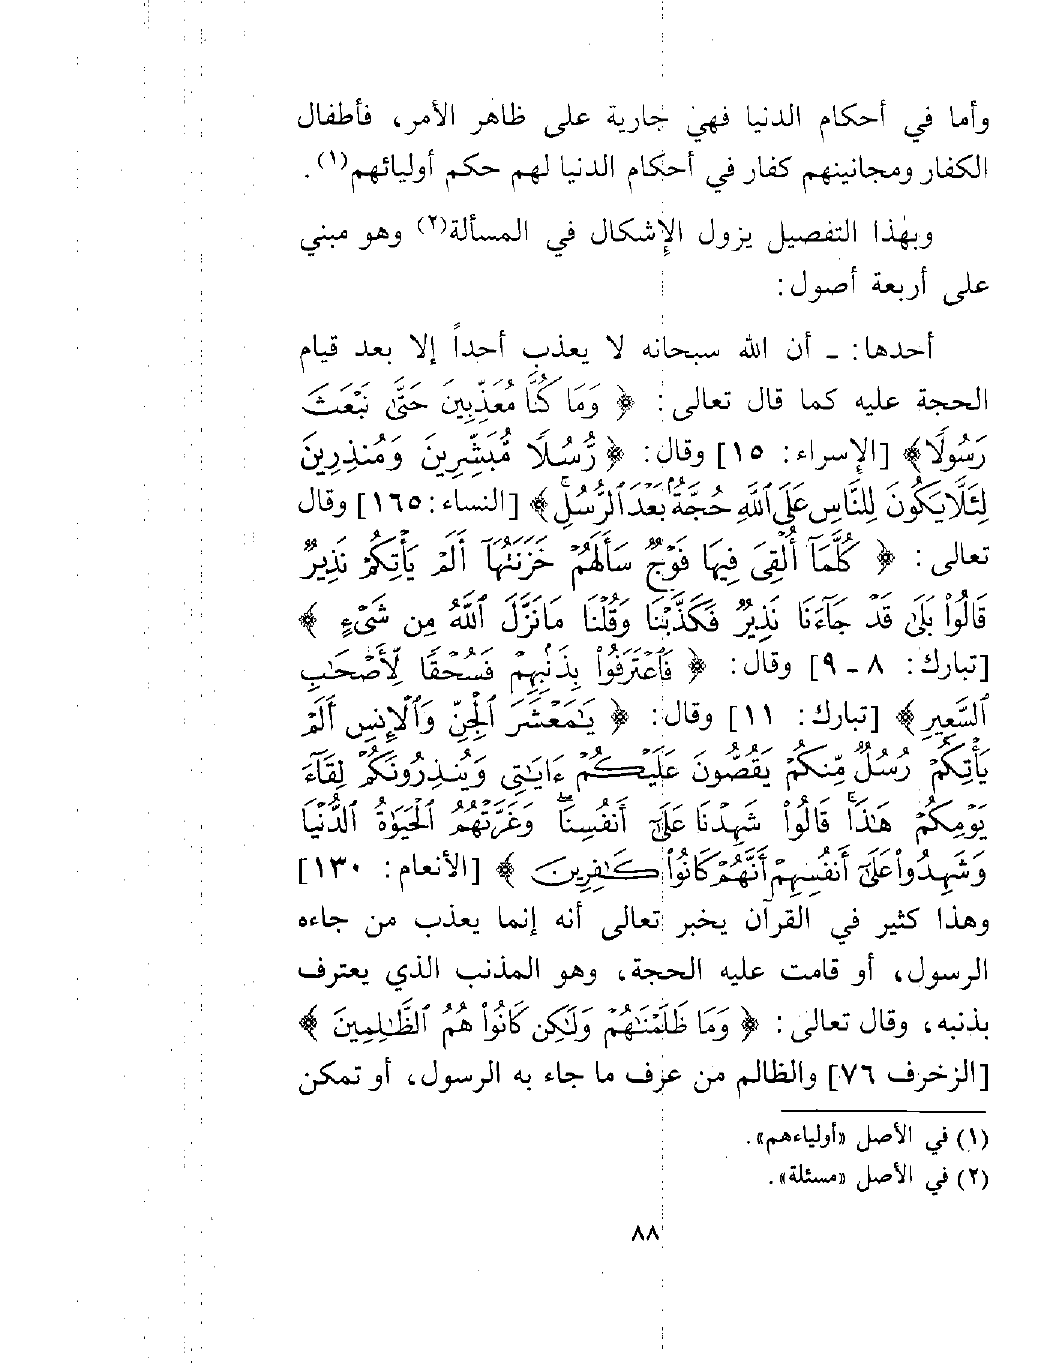 وأما في أحكام الدنيا فهي جارية على ظاهر الأمر، فأطفال
الكفار ومجانينهم كفار في أحكام الدنيا لهم حكم أوليائهم(١).
وبهٰذا التفصيل يزول الإشكال في المسألة(٢) وهو مبني
على أربعة أصول:
أحدها: ـ أن الله سبحانه لا يعذب أحداً إلا بعد قيام
الحجة عليه كما قال تعالى: ﴿ وَمَا كُنَّا مُعَذِّبِينَ حَتَّىٰ نَبْعَثَ
رَسُولًا ﴾ [الإسراء: ١٥] وقال: ﴿ رُّسُلًا مُّبَشِّرِينَ وَمُنذِرِينَ
لِئَلَّا يَكُونَ لِلنَّاسِ عَلَى ٱللَّهِ حُجَّةٌۢ بَعْدَ ٱلرُّسُلِۚ ﴾ [النساء: ١٦٥] وقال
تعالى: ﴿ كُلَّمَآ أُلْقِىَ فِيهَا فَوْجٌ سَأَلَهُمْ خَزَنَتُهَآ أَلَمْ يَأْتِكُمْ نَذِيرٌ
قَالُوا۟ بَلَىٰ قَدْ جَآءَنَا نَذِيرٌ فَكَذَّبْنَا وَقُلْنَا مَا نَزَّلَ ٱللَّهُ مِن شَىْءٍ ﴾
[تبارك: ٨ - ٩] وقال: ﴿ فَٱعْتَرَفُوا۟ بِذَنۢبِهِمْ فَسُحْقًا لِّأَصْحَٰبِ
ٱلسَّعِيرِ ﴾ [تبارك: ١١] وقال: ﴿ يَٰمَعْشَرَ ٱلْجِنِّ وَٱلْإِنسِ أَلَمْ
يَأْتِكُمْ رُسُلٌ مِّنكُمْ يَقُصُّونَ عَلَيْكُمْ ءَايَٰتِى وَيُنذِرُونَكُمْ لِقَآءَ
يَوْمِكُمْ هَٰذَاۚ قَالُوا۟ شَهِدْنَا عَلَىٰٓ أَنفُسِنَاۖ وَغَرَّتْهُمُ ٱلْحَيَوٰةُ ٱلدُّنْيَا
وَشَهِدُوا۟ عَلَىٰٓ أَنفُسِهِمْ أَنَّهُمْ كَانُوا۟ كَٰفِرِينَ ﴾ [الأنعام: ١٣٠]
وهذا كثير في القرآن يخبر تعالى أنه إنما يعذب من جاءه
الرسول، أو قامت عليه الحجة، وهو المذنب الذي يعترف
بذنبه، وقال تعالى: ﴿ وَمَا ظَلَمْنَٰهُمْ وَلَٰكِن كَانُوا۟ هُمُ ٱلظَّٰلِمِينَ ﴾
[الزخرف ٧٦] والظالم من عرف ما جاء به الرسول، أو تمكن
(١) في الأصل «أولياءهم».
(٢) في الأصل «مسئلة».
٨٨